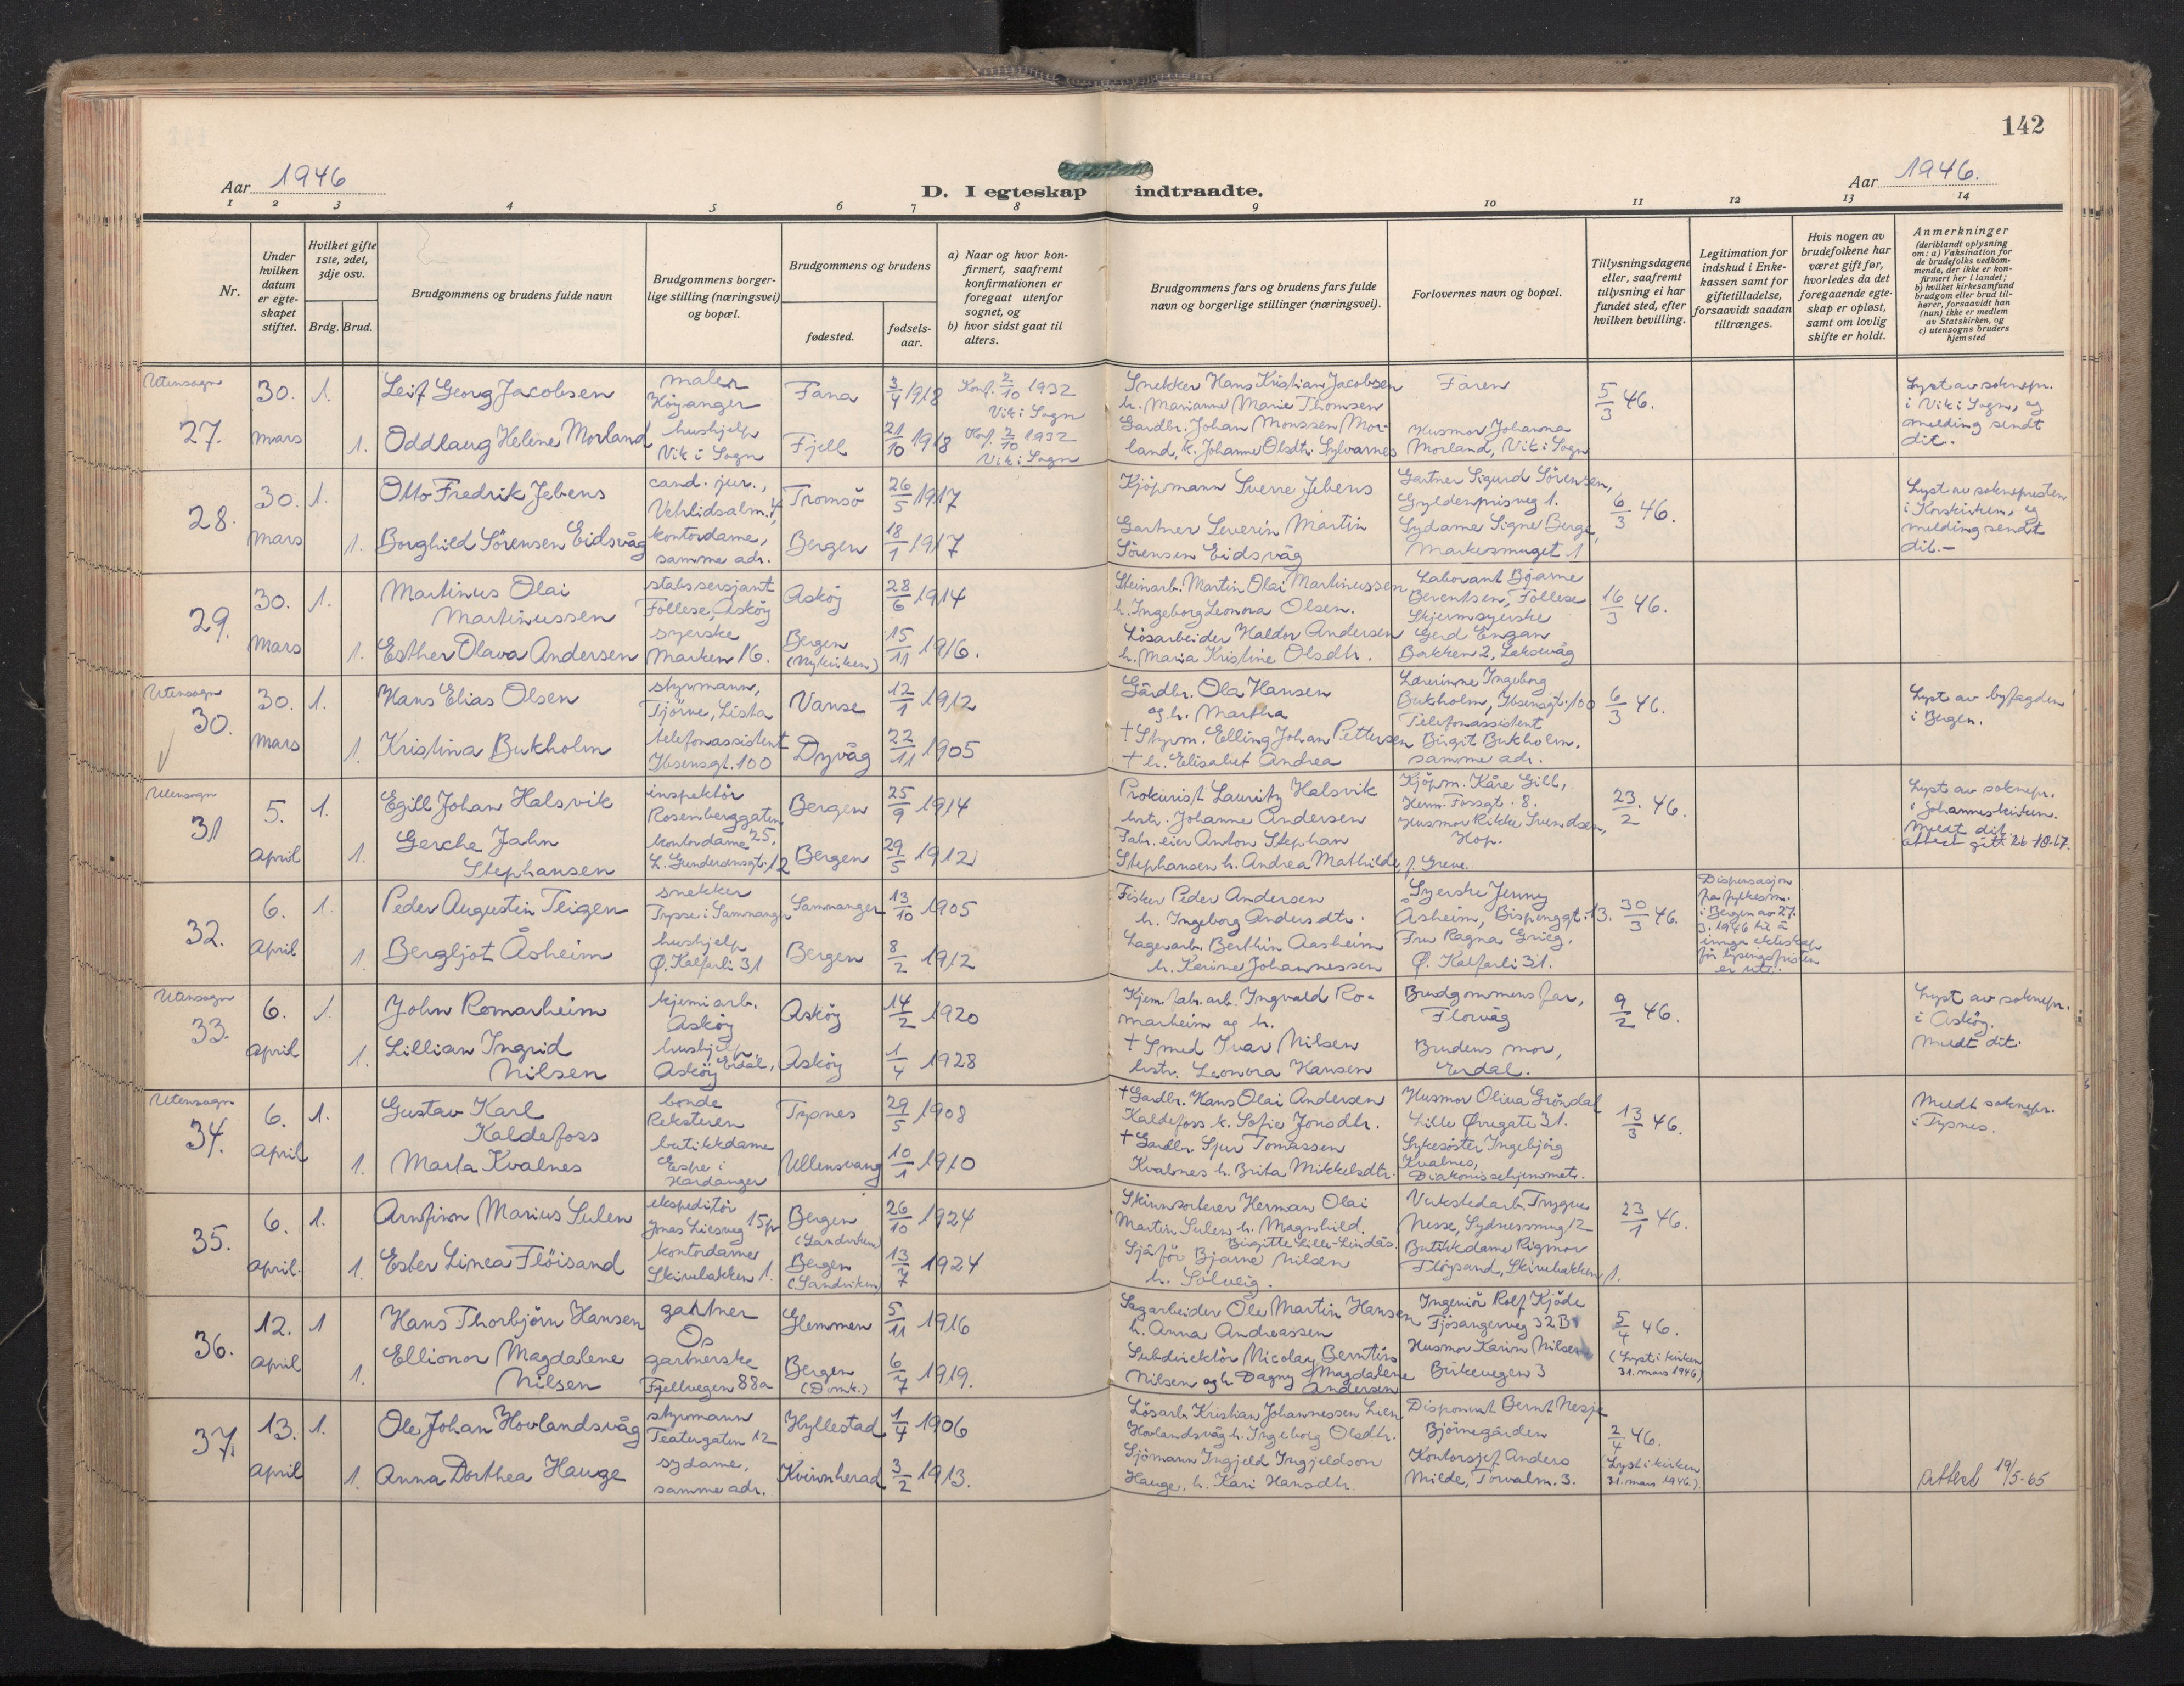 142
Aar 1946
D. I egteskap indtraadte.
Aar 1946.
1 2 3 4 5 6 7 8 9 10 11 12 13 14
Nr.
Under hvilken datum er egteskapet stiftet.
Hvilket gifte 1ste, 2det, 3dje osv.
Brdg. Brud.
Brudgommens og brudens fulde navn
Brudgommens borgerlige stilling (næringsvei) og bopæl.
Brudgommens og brudens
fødested.
fødselsaar.
a) Naar og hvor konfirmert, saafremt konfirmationen er foregaat utenfor sognet, og
b) hvor sidst gaat til alters.
Brudgommens fars og brudens fars fulde navn og borgerlige stillinger (næringsvei).
Forlovernes navn og bopæl.
Tillysningsdagene eller, saafremt tillysning ei har fundet sted, efter hvilken bevilling.
Legitimation for indskud i Enkekassen samt for giftetilladelse, forsaavidt saadan tiltrænges.
Hvis nogen av brudefolkene har været gift før, hvorledes da det foregaaende egteskap er opløst, samt om lovlig skifte er holdt.
Anmerkninger
(deriblandt oplysning om: a) Vaksination for de brudefolks vedkommende, der ikke er konfirmert her i landet; b) hvilket kirkesamfund brudgom eller brud tilhører, forsaavidt han (hun) ikke er medlem av Statskirken, og c) utensogns bruders hjemsted
Utensogns
27.
30. mars
1.
Leif Georg Jacobsen
maler
Höyanger
Fana
3/4 1918
Konf. 2/10 1932
Vik i Sogn
1.
Oddlaug Helene Morland
hushjelp
Vik i Sogn
Fjell
21/10 1918
Konf. 2/10 1932
Vik i Sogn
Snekker Hans Kristian Jacobsen
h. Marianne Marie Thomsen
Gardbr. Johan Monssen Mor-
land, h. Johanne Olsdtr. Sylvarnes
Faren
Husmor Johanna
Morland, Vik i Sogn
5/3 46.
Lyst av soknepr.
i Vik i Sogn, og
melding sendt
dit.
28.
30. mars
1.
Otto Fredrik Jebens
cand. jur.,
Vetrlidsalm. 4
Tromsö
26/5 1917
1.
Borghild Sörensen Eidsvåg
kontordame,
samme adr.
Bergen
18/1 1917
Kjöpmann Sverre Jebens
Gartner Severin Martin
Sörensen Eidsvåg
Gartner Sigurd Sörensen,
Gyldenprisveg 1.
Sydame Signe Berge,
Markesmuget 1
6/3 46.
Lyst av soknepresten
i Korskirken, og
melding sendt
dit.-
29.
30. Mars
1.
Martinus Olai
Martinussen
stabssersjant
Föllese, Asköy
Asköy
28/6 1914
1.
Esther Olava Andersen
syerske
Marken 16.
Bergen
(Nykirken)
15/11 1916.
Steinarb. Martin Olai Martinussen
h. Ingeborg Leonora Olsen.
Lösarbeider Haldor Andersen
h. Maria Kristine Olsdtr.
Laborant Bjarne
Berentsen, Föllese
Skjermsyerske
Gerd Engan
Bakken 2, Laksevåg
16/3 46.
Utensogns
30.
30. mars
1.
Hans Elias Olsen
styrmann,
Tjörve, Lista
Vanse
12/1 1912
1.
Kristina Bukholm
telefonassistent
Ibsensgt. 100
Dyvåg
22/11 1905
Gårdbr. Ola Hansen
og h. Martha
† Styrm. Elling Johan Pettersen
† h. Elisabet Andrea
Lærerinne Ingeborg
Bukholm, Ibsensgt. 100
Telefonassistent
Birgit Bukholm,
samme adr.
6/3 46.
Lyst av byfogden
i Bergen.
Utensogns
31
5. april
1.
Egill Johan Halsvik
inspektör
Rosenberggaten 25,
Bergen
25/9 1914
1.
Gerche Jahn
Stephansen
kontordame
Bergen
29/5 1912
Prokurist Lauritz Halsvik
hstr. Johanne Andersen
Fabr. eier Anton Stephan
Stephansen h. Andrea Mathilde f. Greve.
Kjöpm. Kåre Gill,
Herm. Fossgt. 8.
Husmor Rikke Svendsen,
Hop.
23/2 46.
Lyst av soknepr.
i Johanneskirken.
Meldt dit.
attest gitt 26-10-67.
32.
6. April
1.
Peder Augustin Teigen
snekker
Trysse i Samnanger
Samnanger
13/10 1905
1.
Bergljot Åsheim
hushjelp
Ø. Kalfarli 31
Bergen
8/2 1912
Fisker Peder Andersen
h. Ingeborg Andersdtr.
Lagerarb. Berthin Aasheim
h. Karine Johannessen
Syerske Jenny
Åsheim, Bispenggt. 13.
Fru Ragna Grieg,
Ø. Kalfarli 31.
30/3 46.
Dispensasjon
fra fylkesm.
i Bergen av 27.
3. 1946 til å
inngå ekteskap
för lysingsfristen
er ute.
Utensogns
33.
6. april
1.
John Romarheim
kjemiarb.
Asköy
Asköy
14/2 1920
1.
Lillian Ingrid
Nilsen
hushjelp
Asköy Erdal,
Asköy
1/4 1928
Kjem. fabr. arb. Ingvald Ro-
marheim og h.
† Smed Ivar Nilsen
hstr. Leonora Hansen
Brudgommens far,
Florvåg
Brudens mor,
Erdal.
9/2 46.
Lyst av soknepr.
i Asköy.
Meldt dit.
Utensogns
34.
6. April
1.
Gustav Karl
Kaldefoss
bonde
Reksteren
Tysnes
29/5 1908
1.
Marta Kvalnes
butikkdame
Espe i
Hardanger
Ullensvang
10/1 1910
† Gardbr. Hans Olai Andersen
Kaldefoss h. Sofie Jonsdtr.
† Gardbr. Sjur Tomassen
Kvalnes h. Brita Mikkelsdtr.
Husmor Oliva Gröndal
Lille Øvregate 31.
Sykesöster Ingebjörg
Kvalnes,
Diakonissehjemmet.
13/3 46.
Meldt soknepr.
i Tysnes.
35.
6. april.
1.
Arnfinn Marius Sulen
ekspeditör
Jonas Liesveg 15
Bergen
(Sandviken)
26/10 1924
1.
Ester Linea Flöisand
kontordame
Skivebakken 1.
Bergen
(Sandviken)
13/7 1924
Skinnsorterer Herman Olai
Martin Sulen h. Magnhild
Birgitte Lille-Lindås.
Sjåför Bjarne Nilsen
h. Solveig.
Verkstedarb. Trygve
Nesse, Sydnessmug 12
Butikkdame Rigmor
Flöysand, Skivebakken 1.
23/1 46.
36.
12. April
1
Hans Thorbjörn Hansen
gartner
Os
Glemmen
5/11 1916
1.
Ellionor Magdalene
Nilsen
gartnerske
Fjellvegen 88a
Bergen
(Domk.)
6/7 1919.
Sagarbeider Ole Martin Hansen
h. Anna Andreassen
Subdirektör Nicolay Berntin
Nilsen og h. Dagny Magdalene
Andersen
Ingeniör Rolf Kjöde
Fjösangerveg 32B
Husmor Karin Nilsen
Birkevegen 3
5/4 46.
(Lyst i kirken
31. mars 1946)
37.
13. April
1.
Ole Johan Hovlandsvåg
styrmann
Teatergaten 12
Hyllestad
1/4 1906
1.
Anna Dorthea Hauge
sydame,
samme adr.
Kvinnherad
3/2 1913.
Lösarb. Kristian Johannessen Lien
Hovlandsvåg h. Ingeborg Olsdtr.
Sjömann Ingjeld Ingjeldson
Hauge, h. Kari Hansdtr.
Disponent Bernt Nesje
Björnegården
Kontorsjef Anders
Milde, Torvalm. 3.
2/4 46.
(Lyst i kirken
31. mars 1946.)
Attest 19/5-65